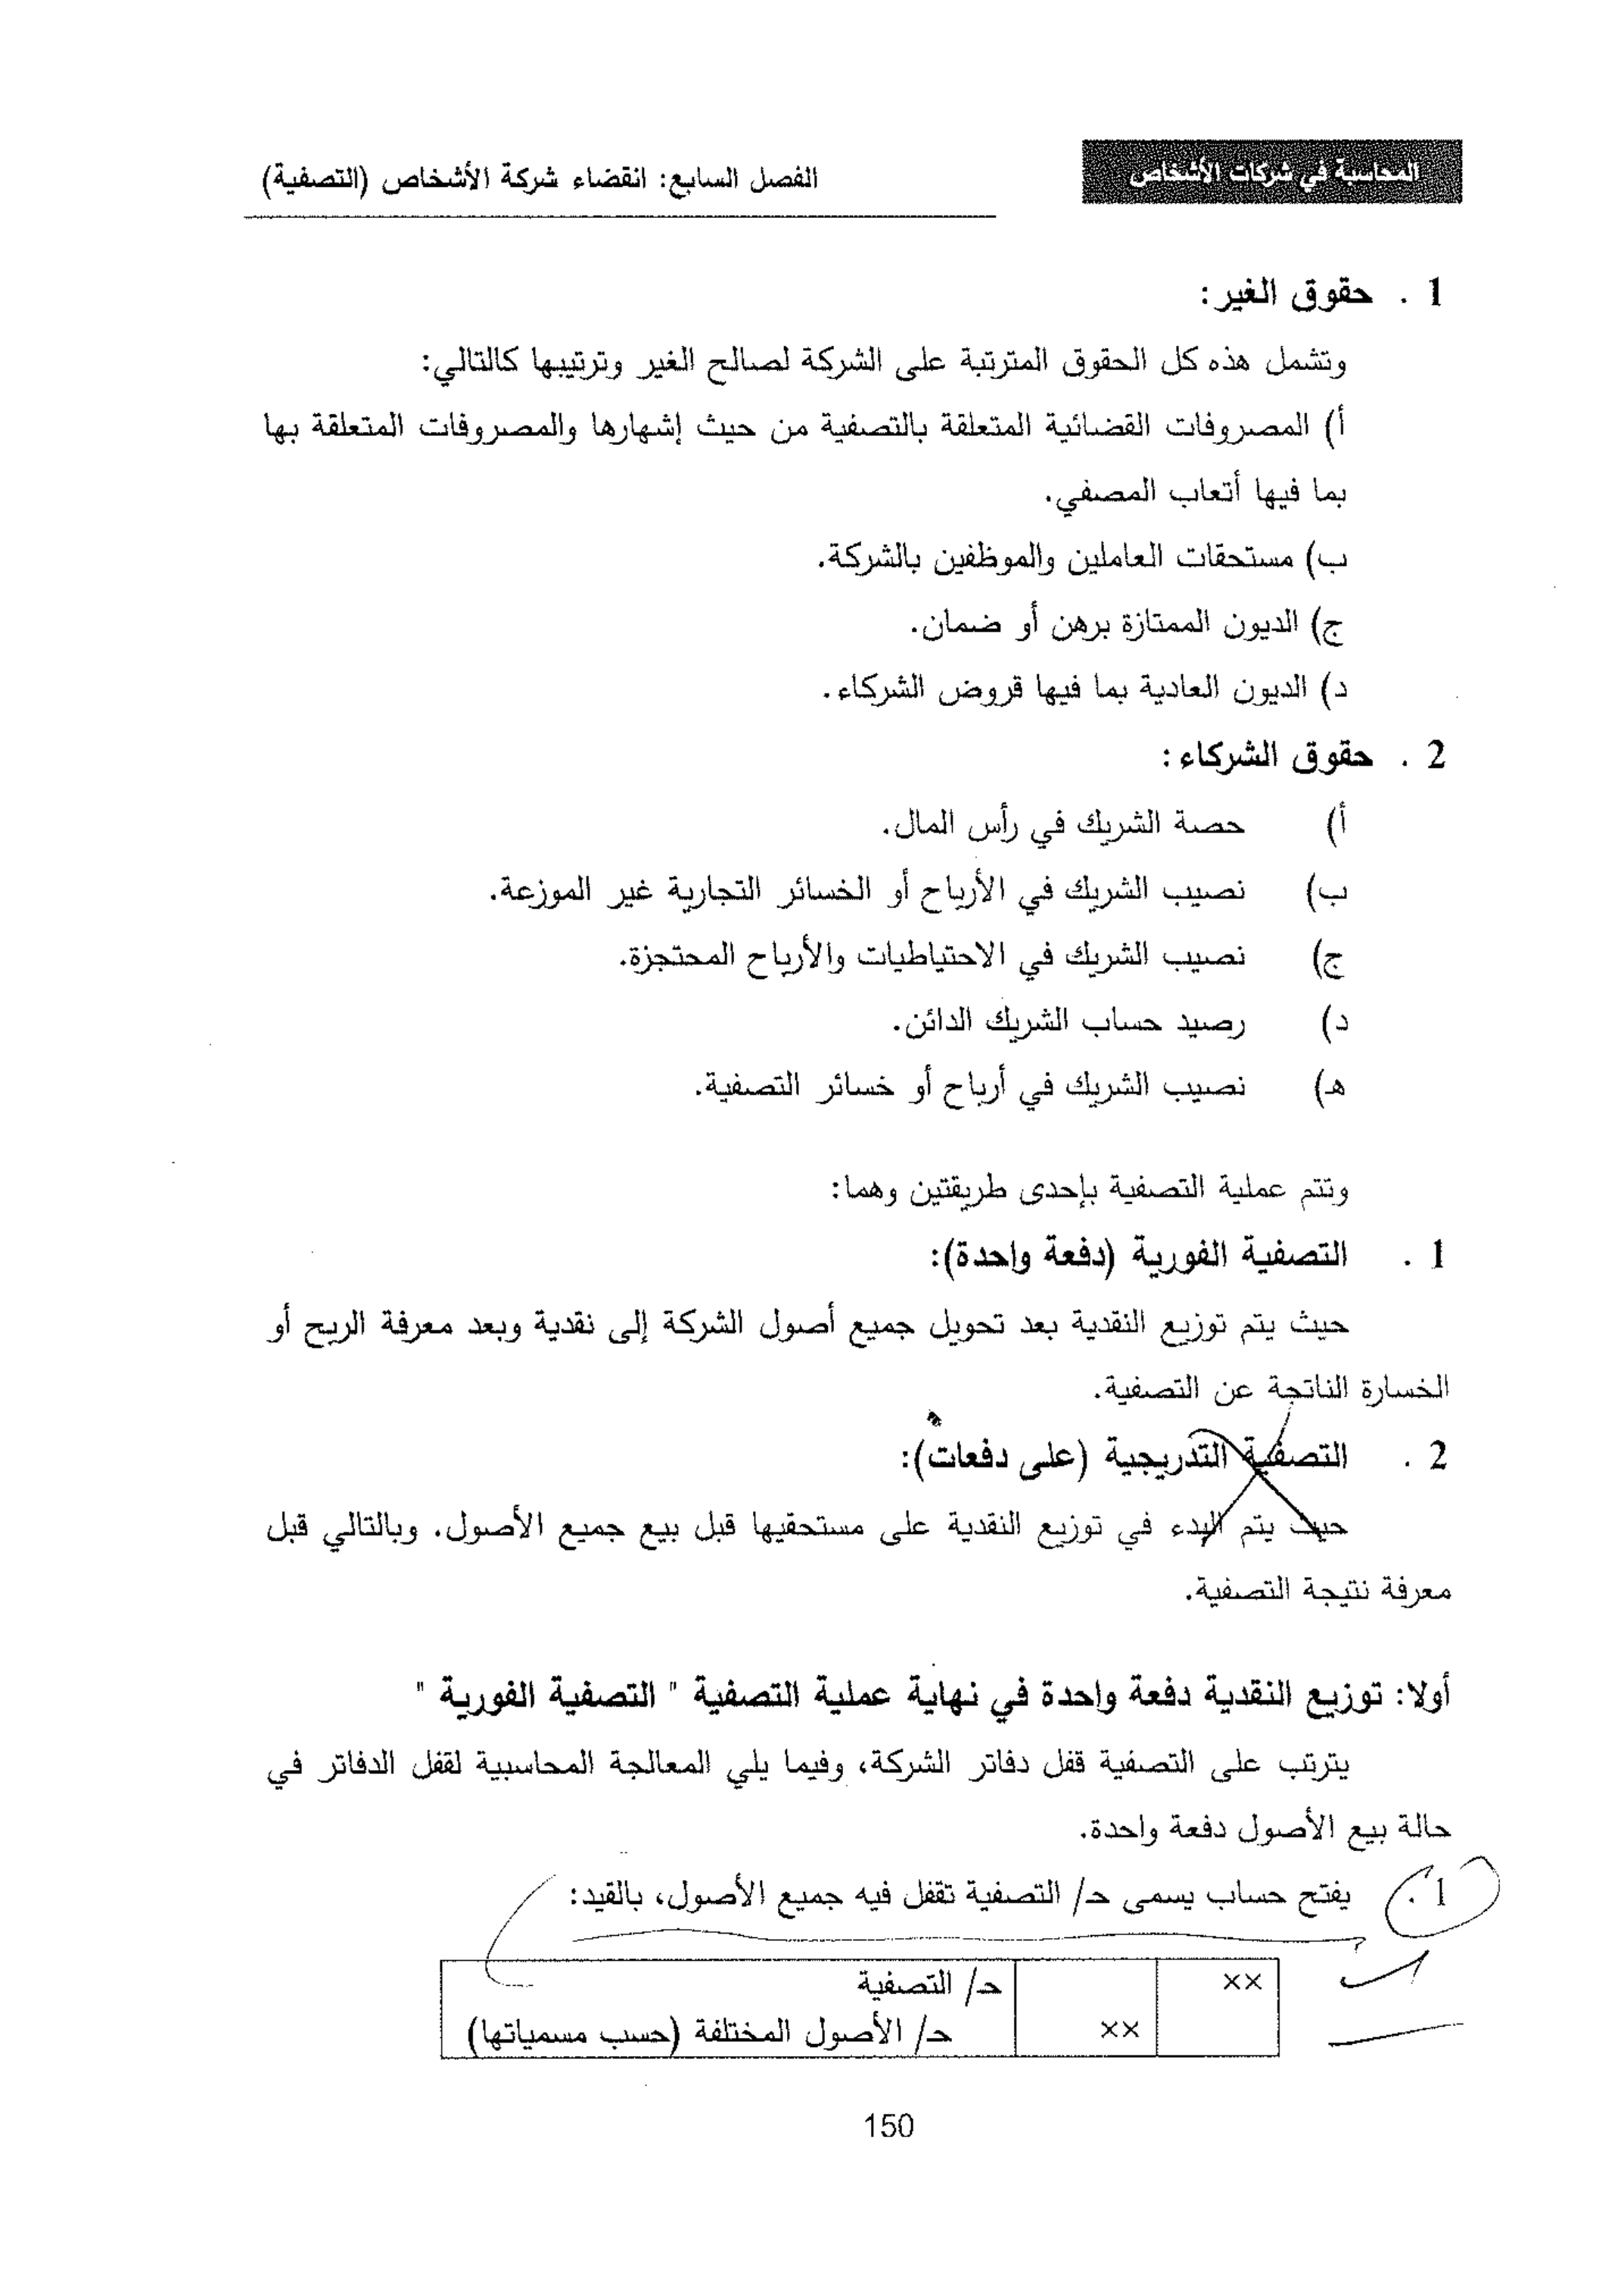 المحاسبة في شركات الأشخاص
الفصل السابع: انقضاء شركة الأشخاص (التصفية)
1 . حقوق الغير:
وتشمل هذه كل الحقوق المترتبة على الشركة لصالح الغير وترتيبها كالتالي:
أ) المصروفات القضائية المتعلقة بالتصفية من حيث إشهارها والمصروفات المتعلقة بها
بما فيها أتعاب المصفي.
ب) مستحقات العاملين والموظفين بالشركة.
ج) الديون الممتازة برهن أو ضمان.
د) الديون العادية بما فيها قروض الشركاء.
2 . حقوق الشركاء:
أ) حصة الشريك في رأس المال.
ب) نصيب الشريك في الأرباح أو الخسائر التجارية غير الموزعة.
ج) نصيب الشريك في الاحتياطيات والأرباح المحتجزة.
د) رصيد حساب الشريك الدائن.
هـ) نصيب الشريك في أرباح أو خسائر التصفية.
وتتم عملية التصفية بإحدى طريقتين وهما:
1 . التصفية الفورية (دفعة واحدة):
حيث يتم توزيع النقدية بعد تحويل جميع أصول الشركة إلى نقدية وبعد معرفة الربح أو
الخسارة الناتجة عن التصفية.
2 . التصفية التدريجية (على دفعات):
حيث يتم البدء في توزيع النقدية على مستحقيها قبل بيع جميع الأصول. وبالتالي قبل
معرفة نتيجة التصفية.
أولا: توزيع النقدية دفعة واحدة في نهاية عملية التصفية " التصفية الفورية "
يترتب على التصفية قفل دفاتر الشركة، وفيما يلي المعالجة المحاسبية لقفل الدفاتر في
حالة بيع الأصول دفعة واحدة.
1 . يفتح حساب يسمى حـ/ التصفية تقفل فيه جميع الأصول، بالقيد:
×× حـ/ التصفية
×× حـ/ الأصول المختلفة (حسب مسمياتها)
150